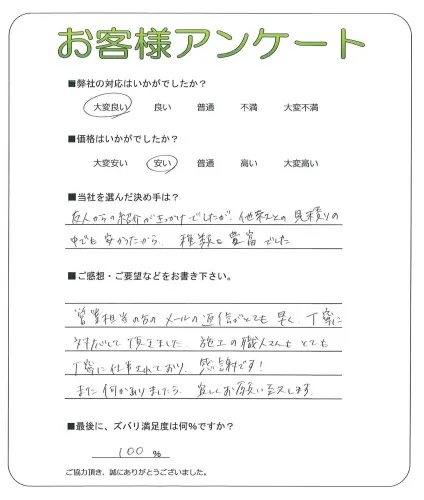 お客様アンケート
■弊社の対応はいかがでしたか？
大変良い 良い 普通 不満 大変不満
■価格はいかがでしたか？
大変安い 安い 普通 高い 大変高い
■当社を選んだ決め手は？
友人からの紹介がきっかけでしたが、他業者との見積りの
中でも安かったから、種類も豊富でした
■ご感想・ご要望などをお書き下さい。
営業担当の方のメールの返信がとても早く、丁寧に
対応して頂きました。施工の職人さんもとても
丁寧に仕事されており、感謝です！
また何かありましたら、宜しくお願い致します。
■最後に、ズバリ満足度は何％ですか？
100 ％
ご協力頂き、誠にありがとうございました。